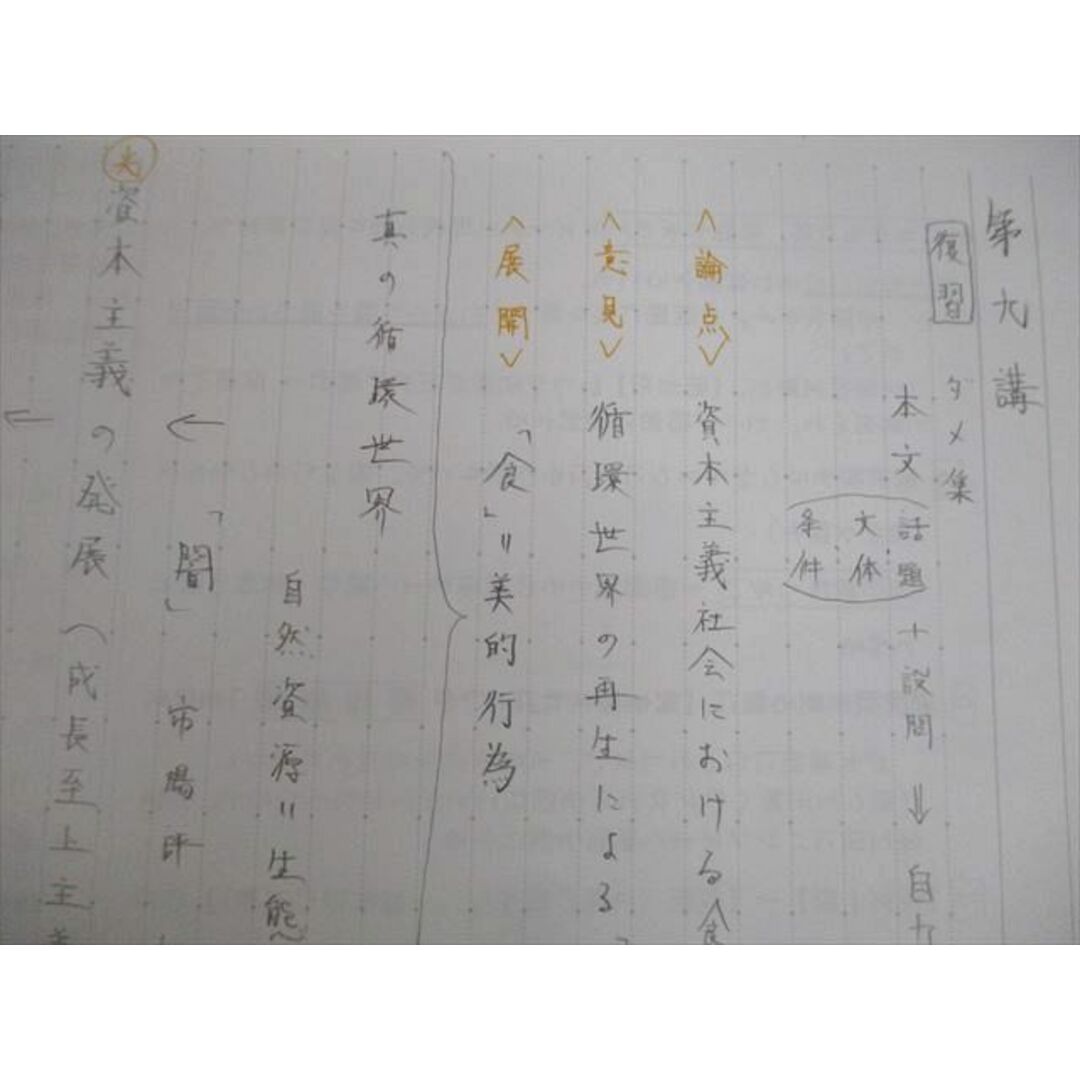 第九講
復習 ダメ集
本文(話題・文体・条件)+設問⇒自力
<論点> 資本主義社会における食
<意見> 循環世界の再生による「
<展開> 「食」=美的行為
真の循環世界
自然資源=生態
← 「闇」 市場
資本主義の発展(成長至上主義
←